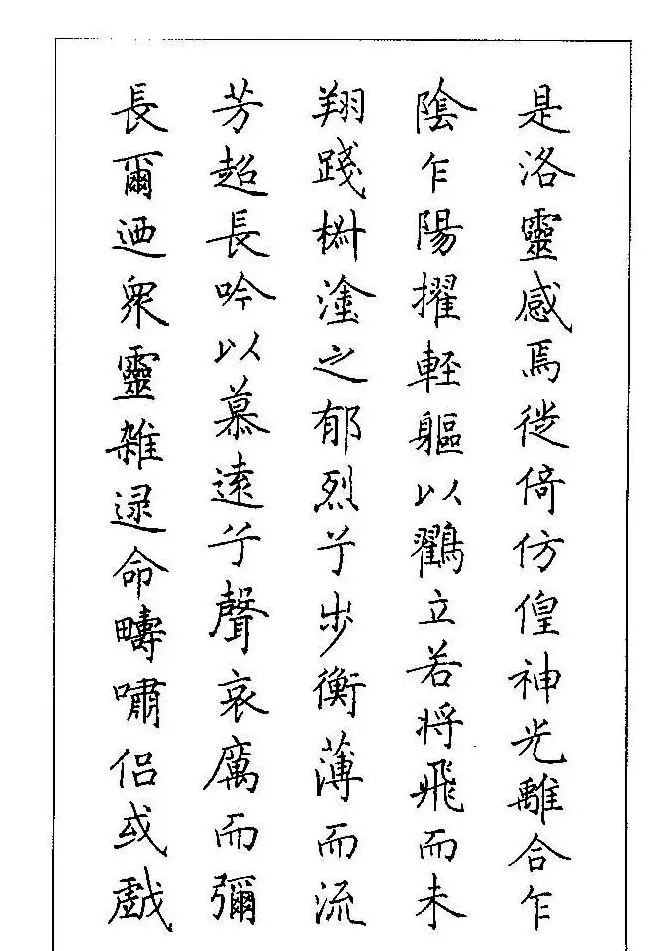 是洛靈感焉徙倚仿偟神光離合乍
陰乍陽擢輕軀以鸐立若将飛而未
翔踐椒塗之郁烈兮步衡薄而流
芳超長吟以慕遠兮聲哀厲而彌
長爾迺衆靈雜遝命疇嘯侶或戲